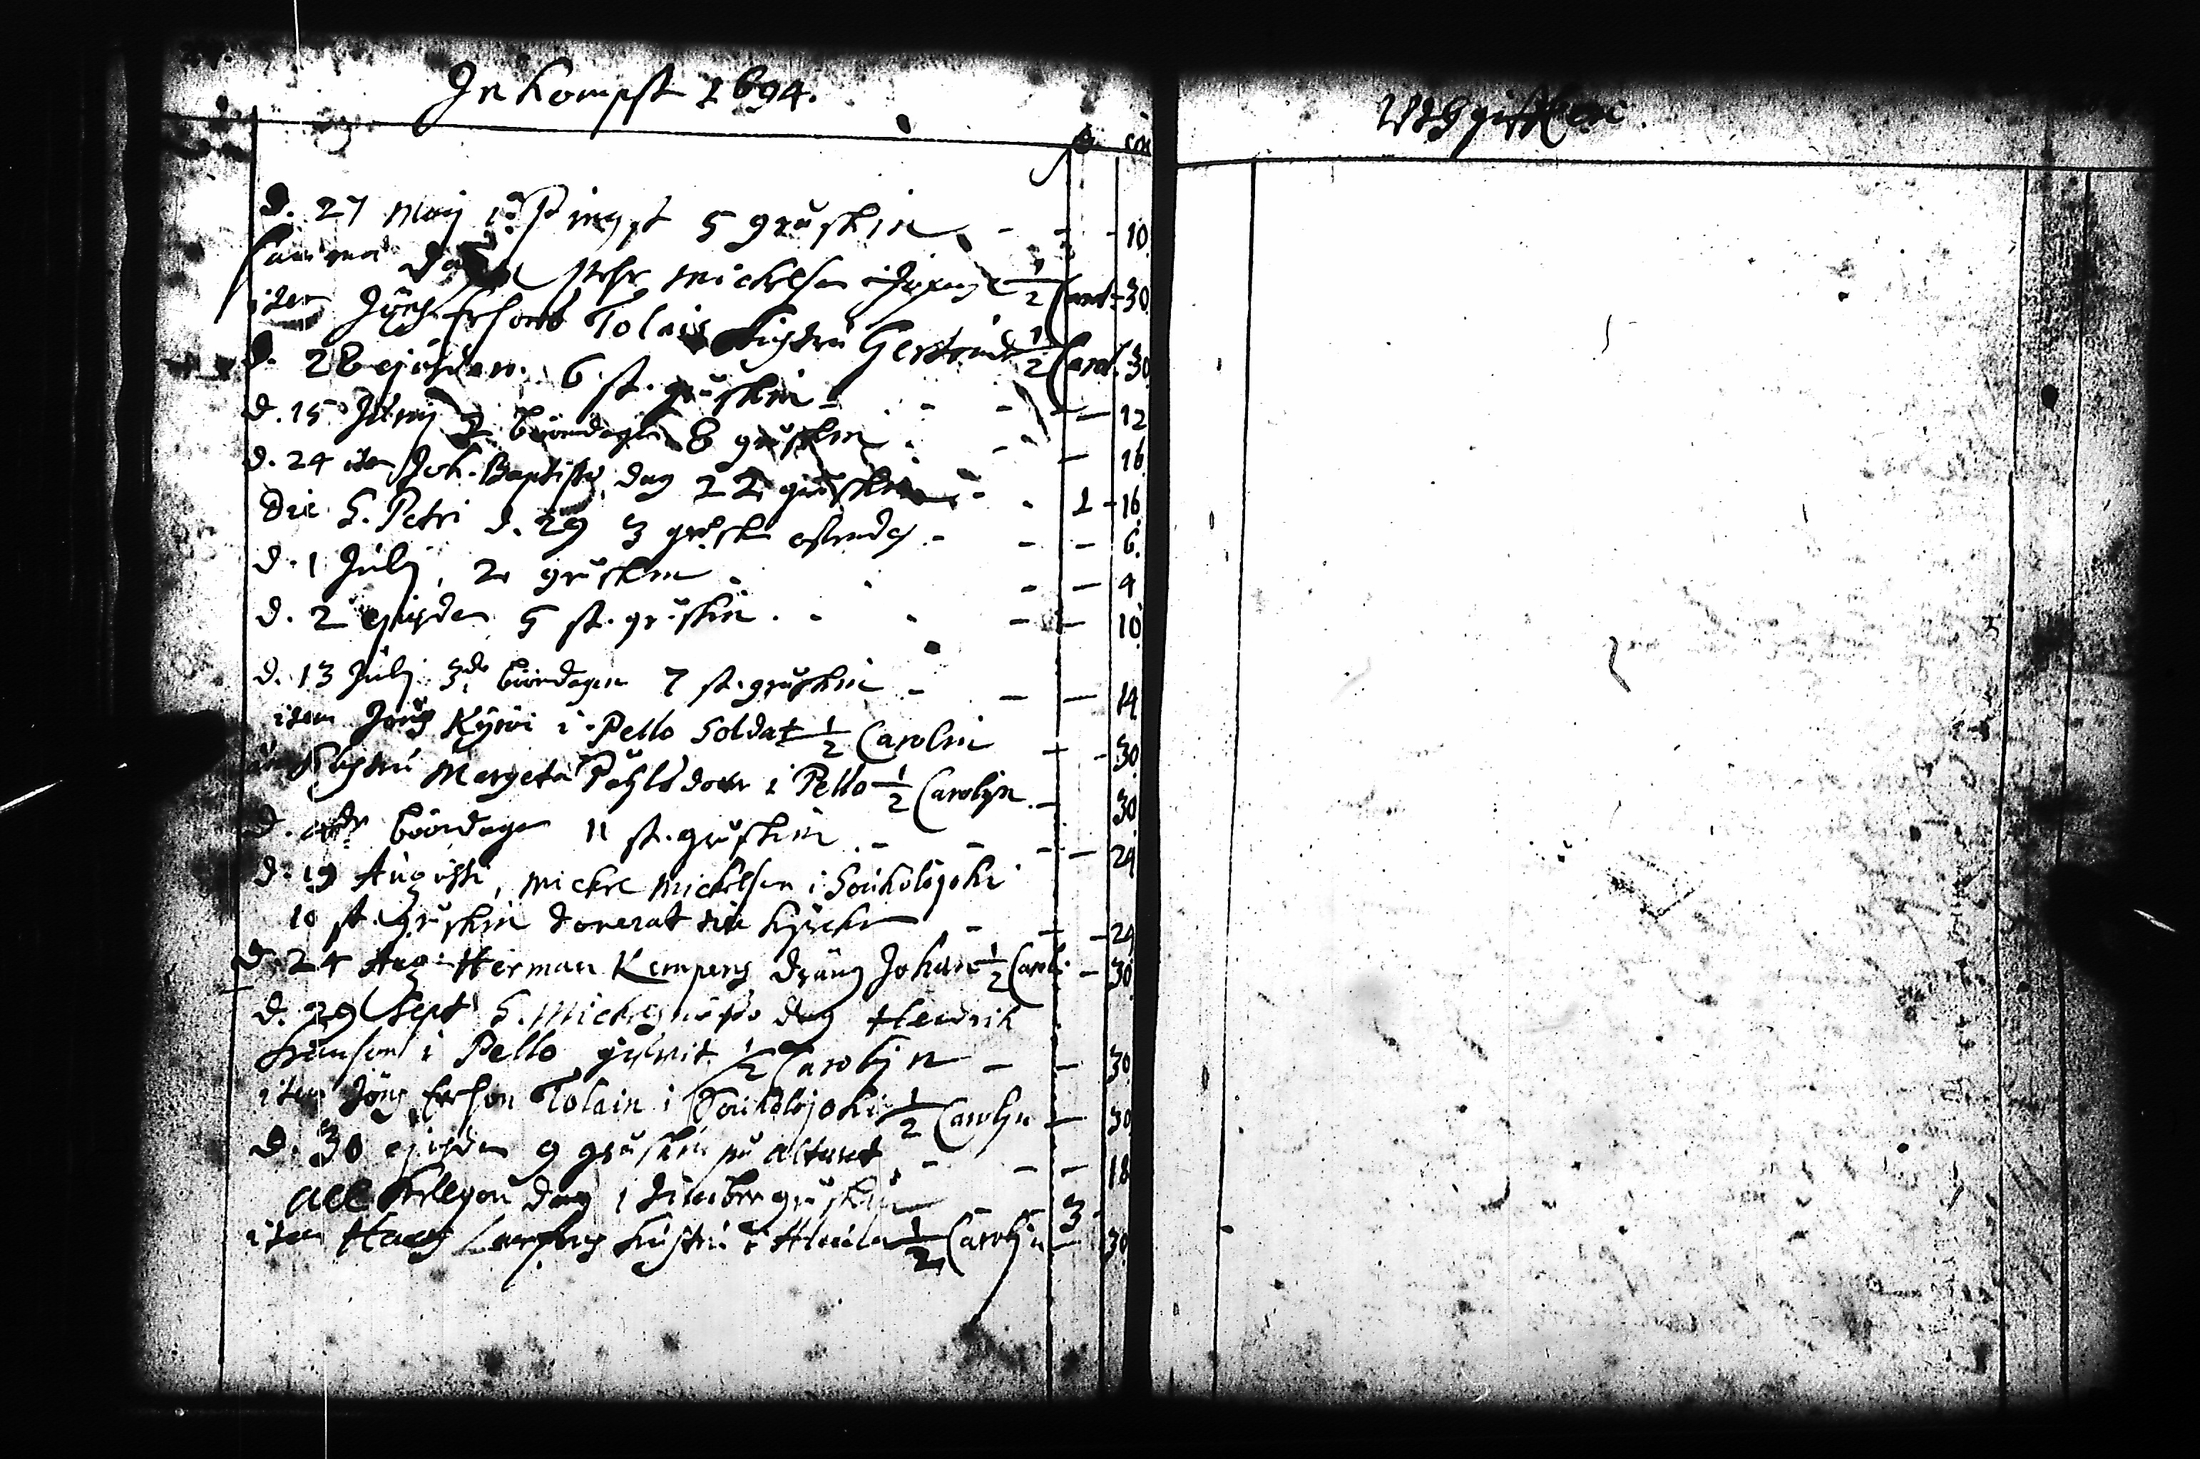 Inkompst 1694.
D. 27 Maij Pingst 5 gråskin - - - 10
samma dag Mickelson 1/2 Carol - 30
item Jöns Ersons Tolais hustru Gertrud 1/2 Carol. 30
D. 28 ejusdem. 6 st. gråskin - - - 12
D. 15 Junij 2 bönedagen 8 gråskin - 16
D. 24 item Joh. Baptistæ dag 22 gråskin - 1 - 16
Die S. Petri d. 29 3 gråsk - - 6.
D. 1 Julij, 2 gråskin - - 4
D. 2 ejusdem 5 st. gråskin. - - - 10
D. 13 Julij 3de böndagen 7 st. gråskin - - - 14
item Jöns Kyröi i Pello Soldat 1/2 Carolin - - 30
hustru Margeta Påhlsdotter i Pello 1/2 Carolijn - 30
D. 4de böndagen 11 st. gråskin - - - - 24
D. 19 Augusti, Mickel Mickelson i Soukolojoki
10 st. gråskin donerat till kyrckan - - - 24
D. 24 Aug. Herman Kempens dräng Johan 1/2 Caroli - 30
D. 29 Sept S. Mickels dag Hendrik
Hanson i Pello gifwit 1/2 Carolijn - - 30
item Jöns Erson Tolain i Soukolojoki 1/2 Carolijn - 30
D. 30 ejusdem 9 gråskin på altaret - - - 18
all helgon dag 1 timber gråskin 3
item Hans Larsons hustru i 1/2 Carolijn - 30
Uthgifften